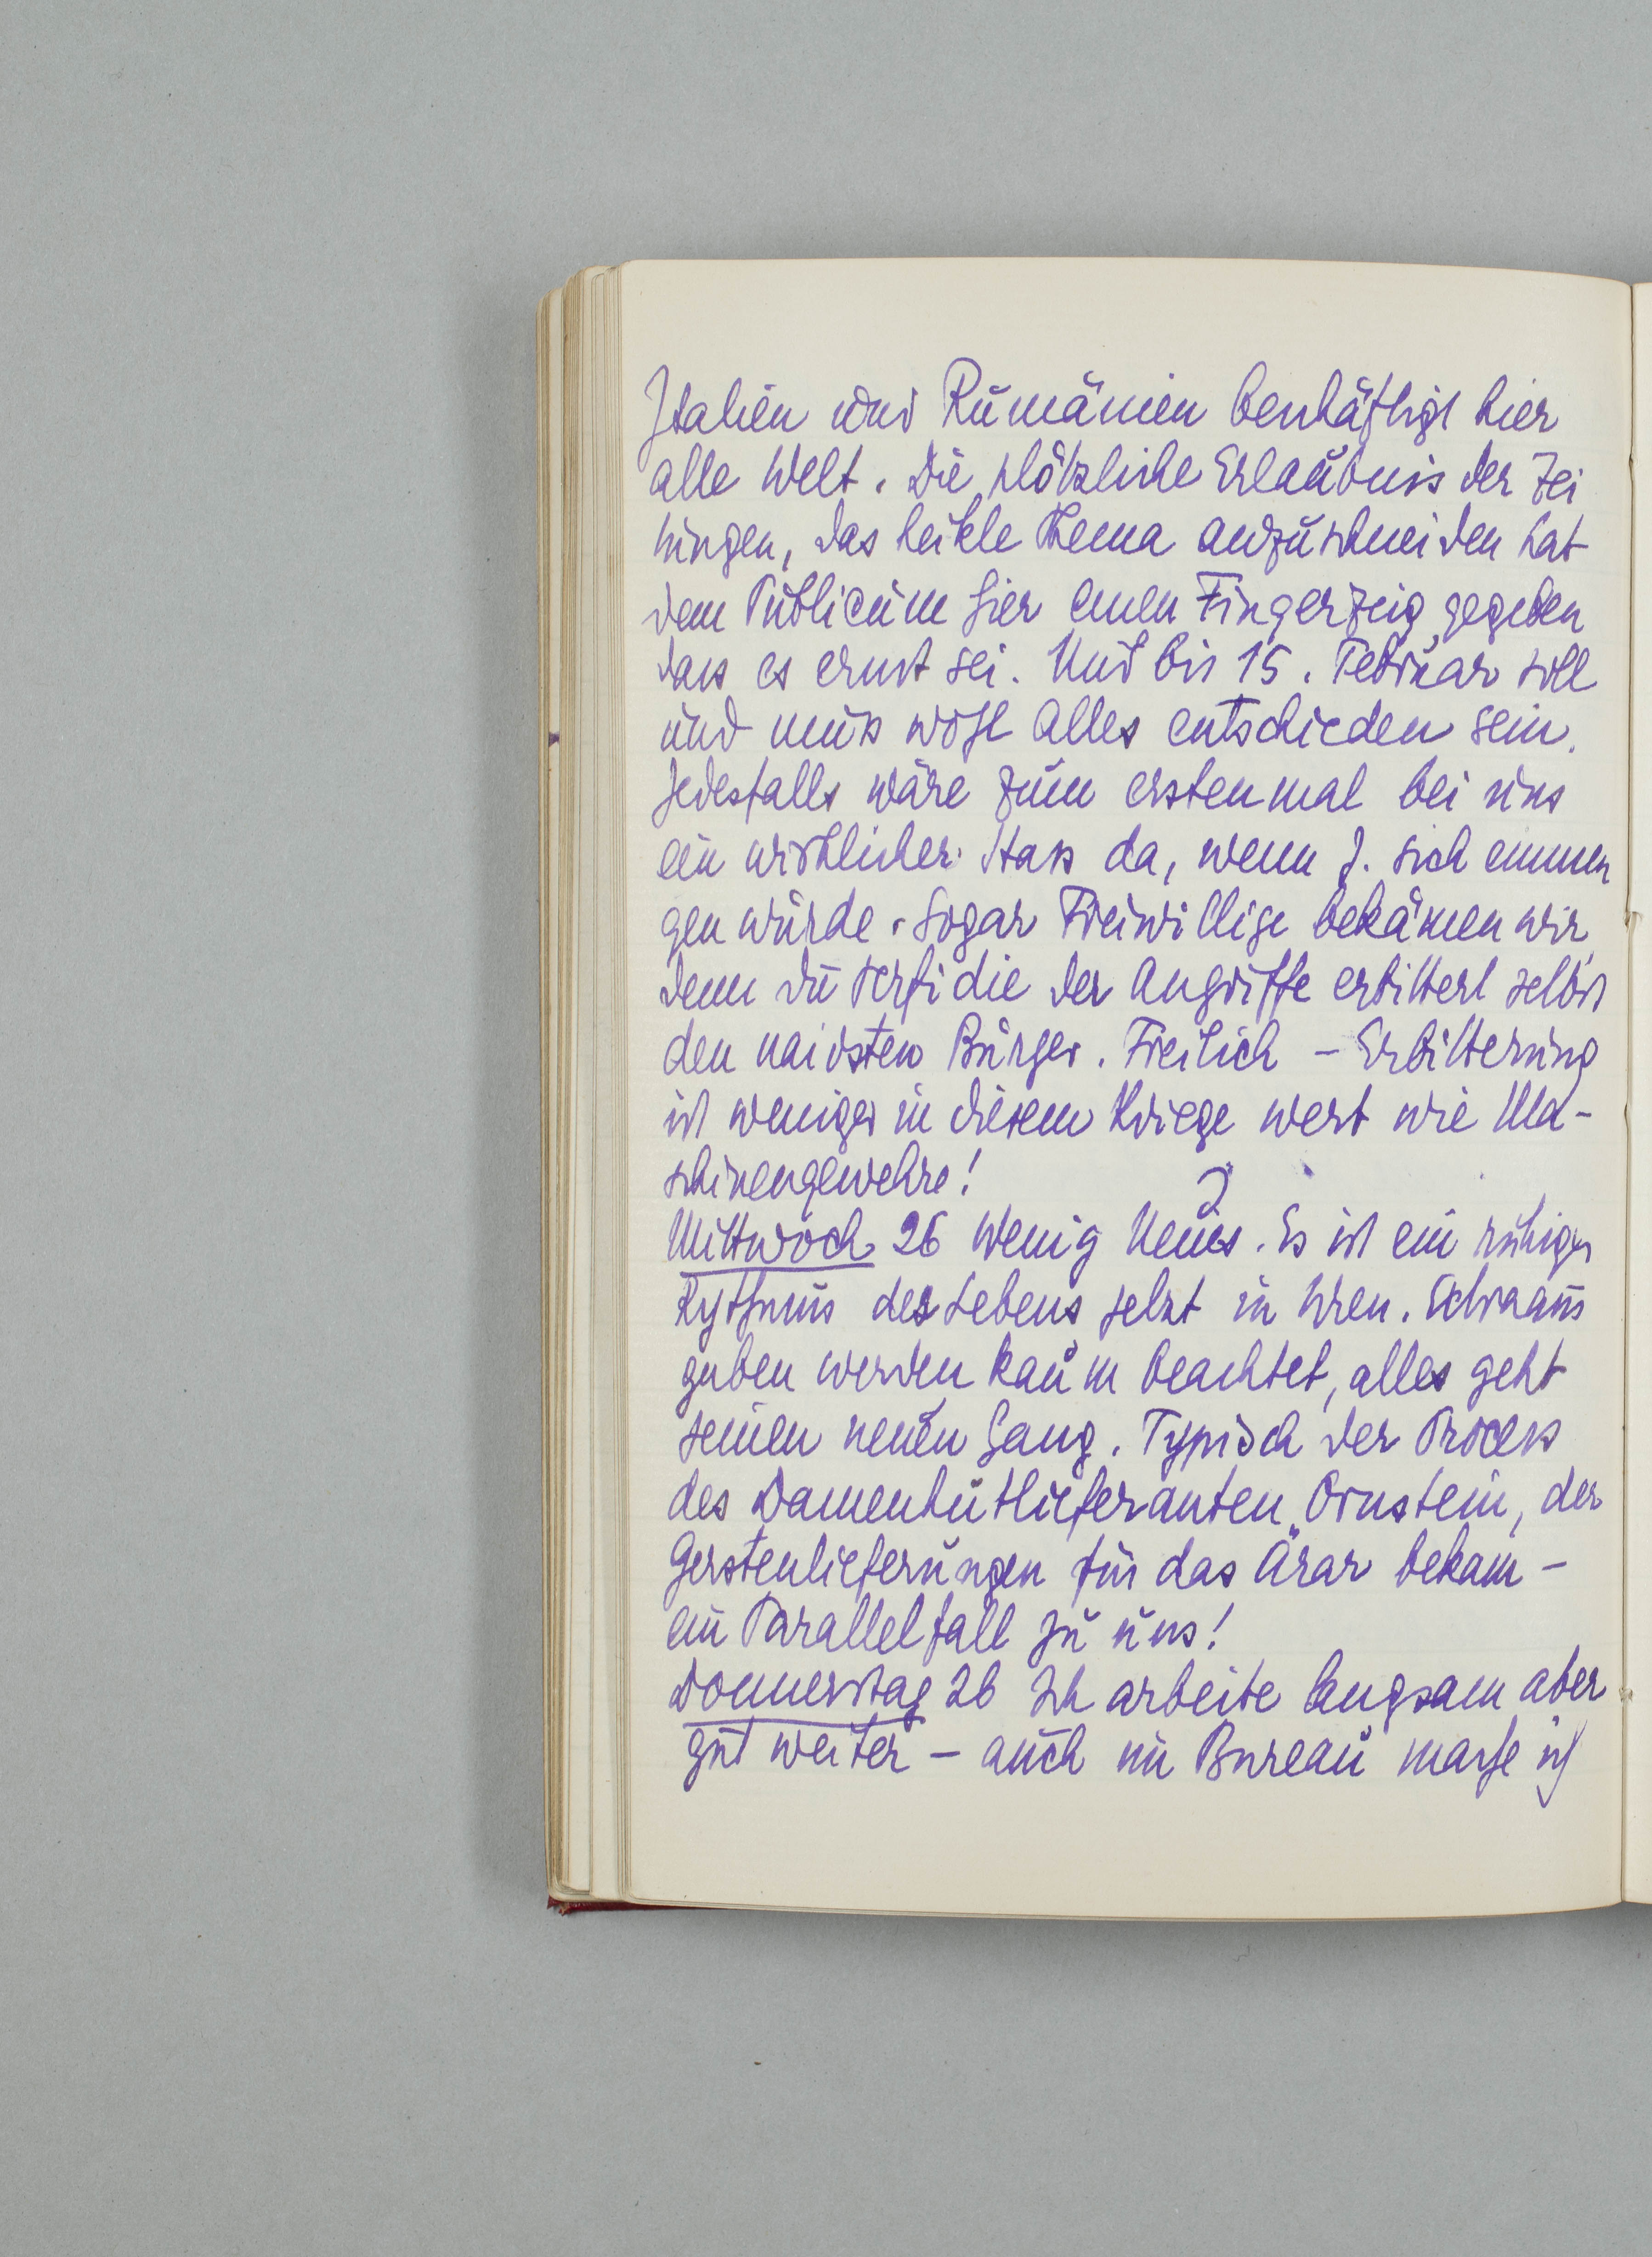 Italien und Rumänien beschäftigt hier
alle Welt. Die plötzliche Erlaubnis der Zei
tungen, das heikle Thema anzuschneiden hat
dem Publicum hier einen Fingerzeig gegeben
dass es ernst sei. Und bis 15. Februar soll
und muss wohl alles entschieden sein.
Jedesfalls wäre zum erstenmal bei uns
ein wirklicher Hass da, wenn I. sich einmen
gen würde. Sogar Freiwillige bekämen wir
denn die Perfidie der Angriffe erbittert selbst
den naivsten Bürger. Freilich – Erbitterung
ist weniger in diesem Kriege wert wie Ma-
schinengewehre!
Mittwoch 26 Wenig Neues. Es ist ein ruhiger
Rythmus des Lebens jetzt in Wien. Extraaus
gaben werden kaum beachtet, alles geht
seinen neuen Gang. Typisch der Process
des Damenhutlieferanten Ornstein, der
Gerstenlieferungen für das Ärar bekam –
ein Parallelfall zu uns!
Donnerstag 26 Ich arbeite langsam aber
gut weiter – auch im Bureau mache ich